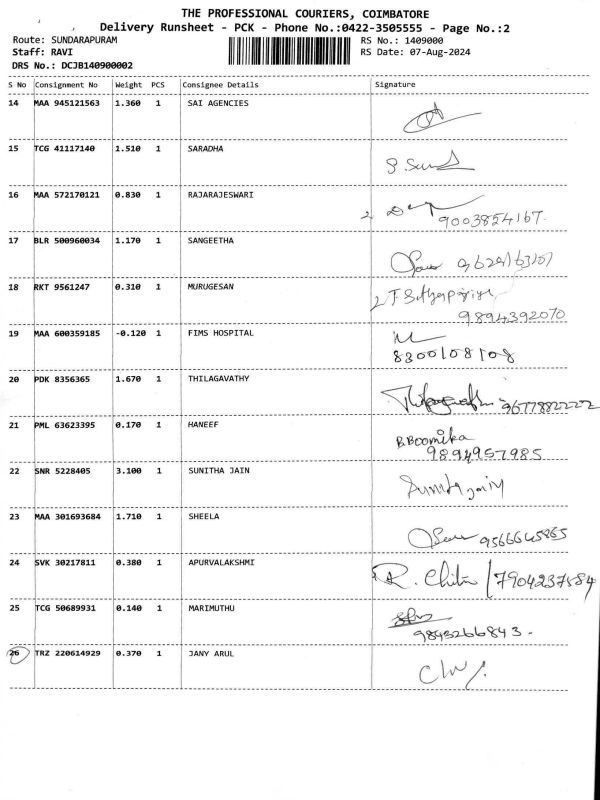 THE PROFESSIONAL COURIERS, COIMBATORE
Delivery Runsheet - PCK - Phone No.:0422-3505555 - Page No.:2
Route: SUNDARAPURAM RS No.: 1409000
Staff: RAVI RS Date: 07-Aug-2024
DRS No.: DCJB140900002
S No Consignment No Weight PCS Consignee Details Signature
14 MAA 945121563 1.360 1 SAI AGENCIES
15 TCG 41117140 1.510 1 SARADHA
16 MAA 572170121 0.830 1 RAJARAJESWARI
9003854167.
17 BLR 500960034 1.170 1 SANGEETHA
18 RKT 9561247 0.310 1 MURUGESAN
9894392070
19 MAA 600359185 -0.120 1 FIMS HOSPITAL
8300108108
20 PDK 8356365 1.670 1 THILAGAVATHY
9677882222
21 PML 63623395 0.170 1 HANEEF B.Boomika
9894957985
22 SNR 5228405 3.100 1 SUNITHA JAIN
23 MAA 301693684 1.710 1 SHEELA
9566645865
24 SVK 30217811 0.380 1 APURVALAKSHMI R. Chitra / 7904237584
25 TCG 50689931 0.140 1 MARIMUTHU
9843266843.
26 TRZ 220614929 0.370 1 JANY ARUL